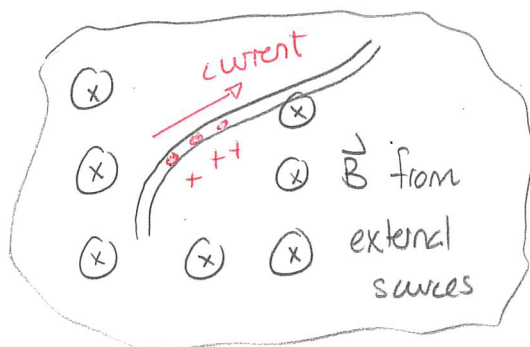 current
+ ++
x
x
x
x
x
x
x
B⃗ from
external
sources